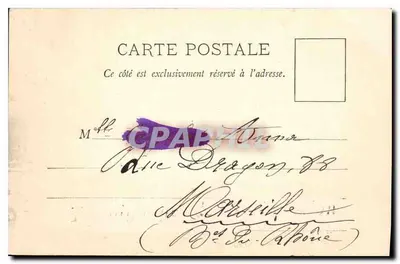 CARTE POSTALE
Ce côté est exclusivement réservé à l'adresse.
Mlle
Rue Dragon, 88
Marseille
(Bches du Rhône)